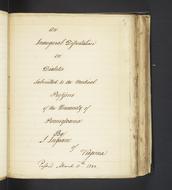 An
Inaugural Dissertation
on
Diabetes
Submitted to the Medical
Professors
of the University of
Pennsylvania
By
of
Virginia
Passed March